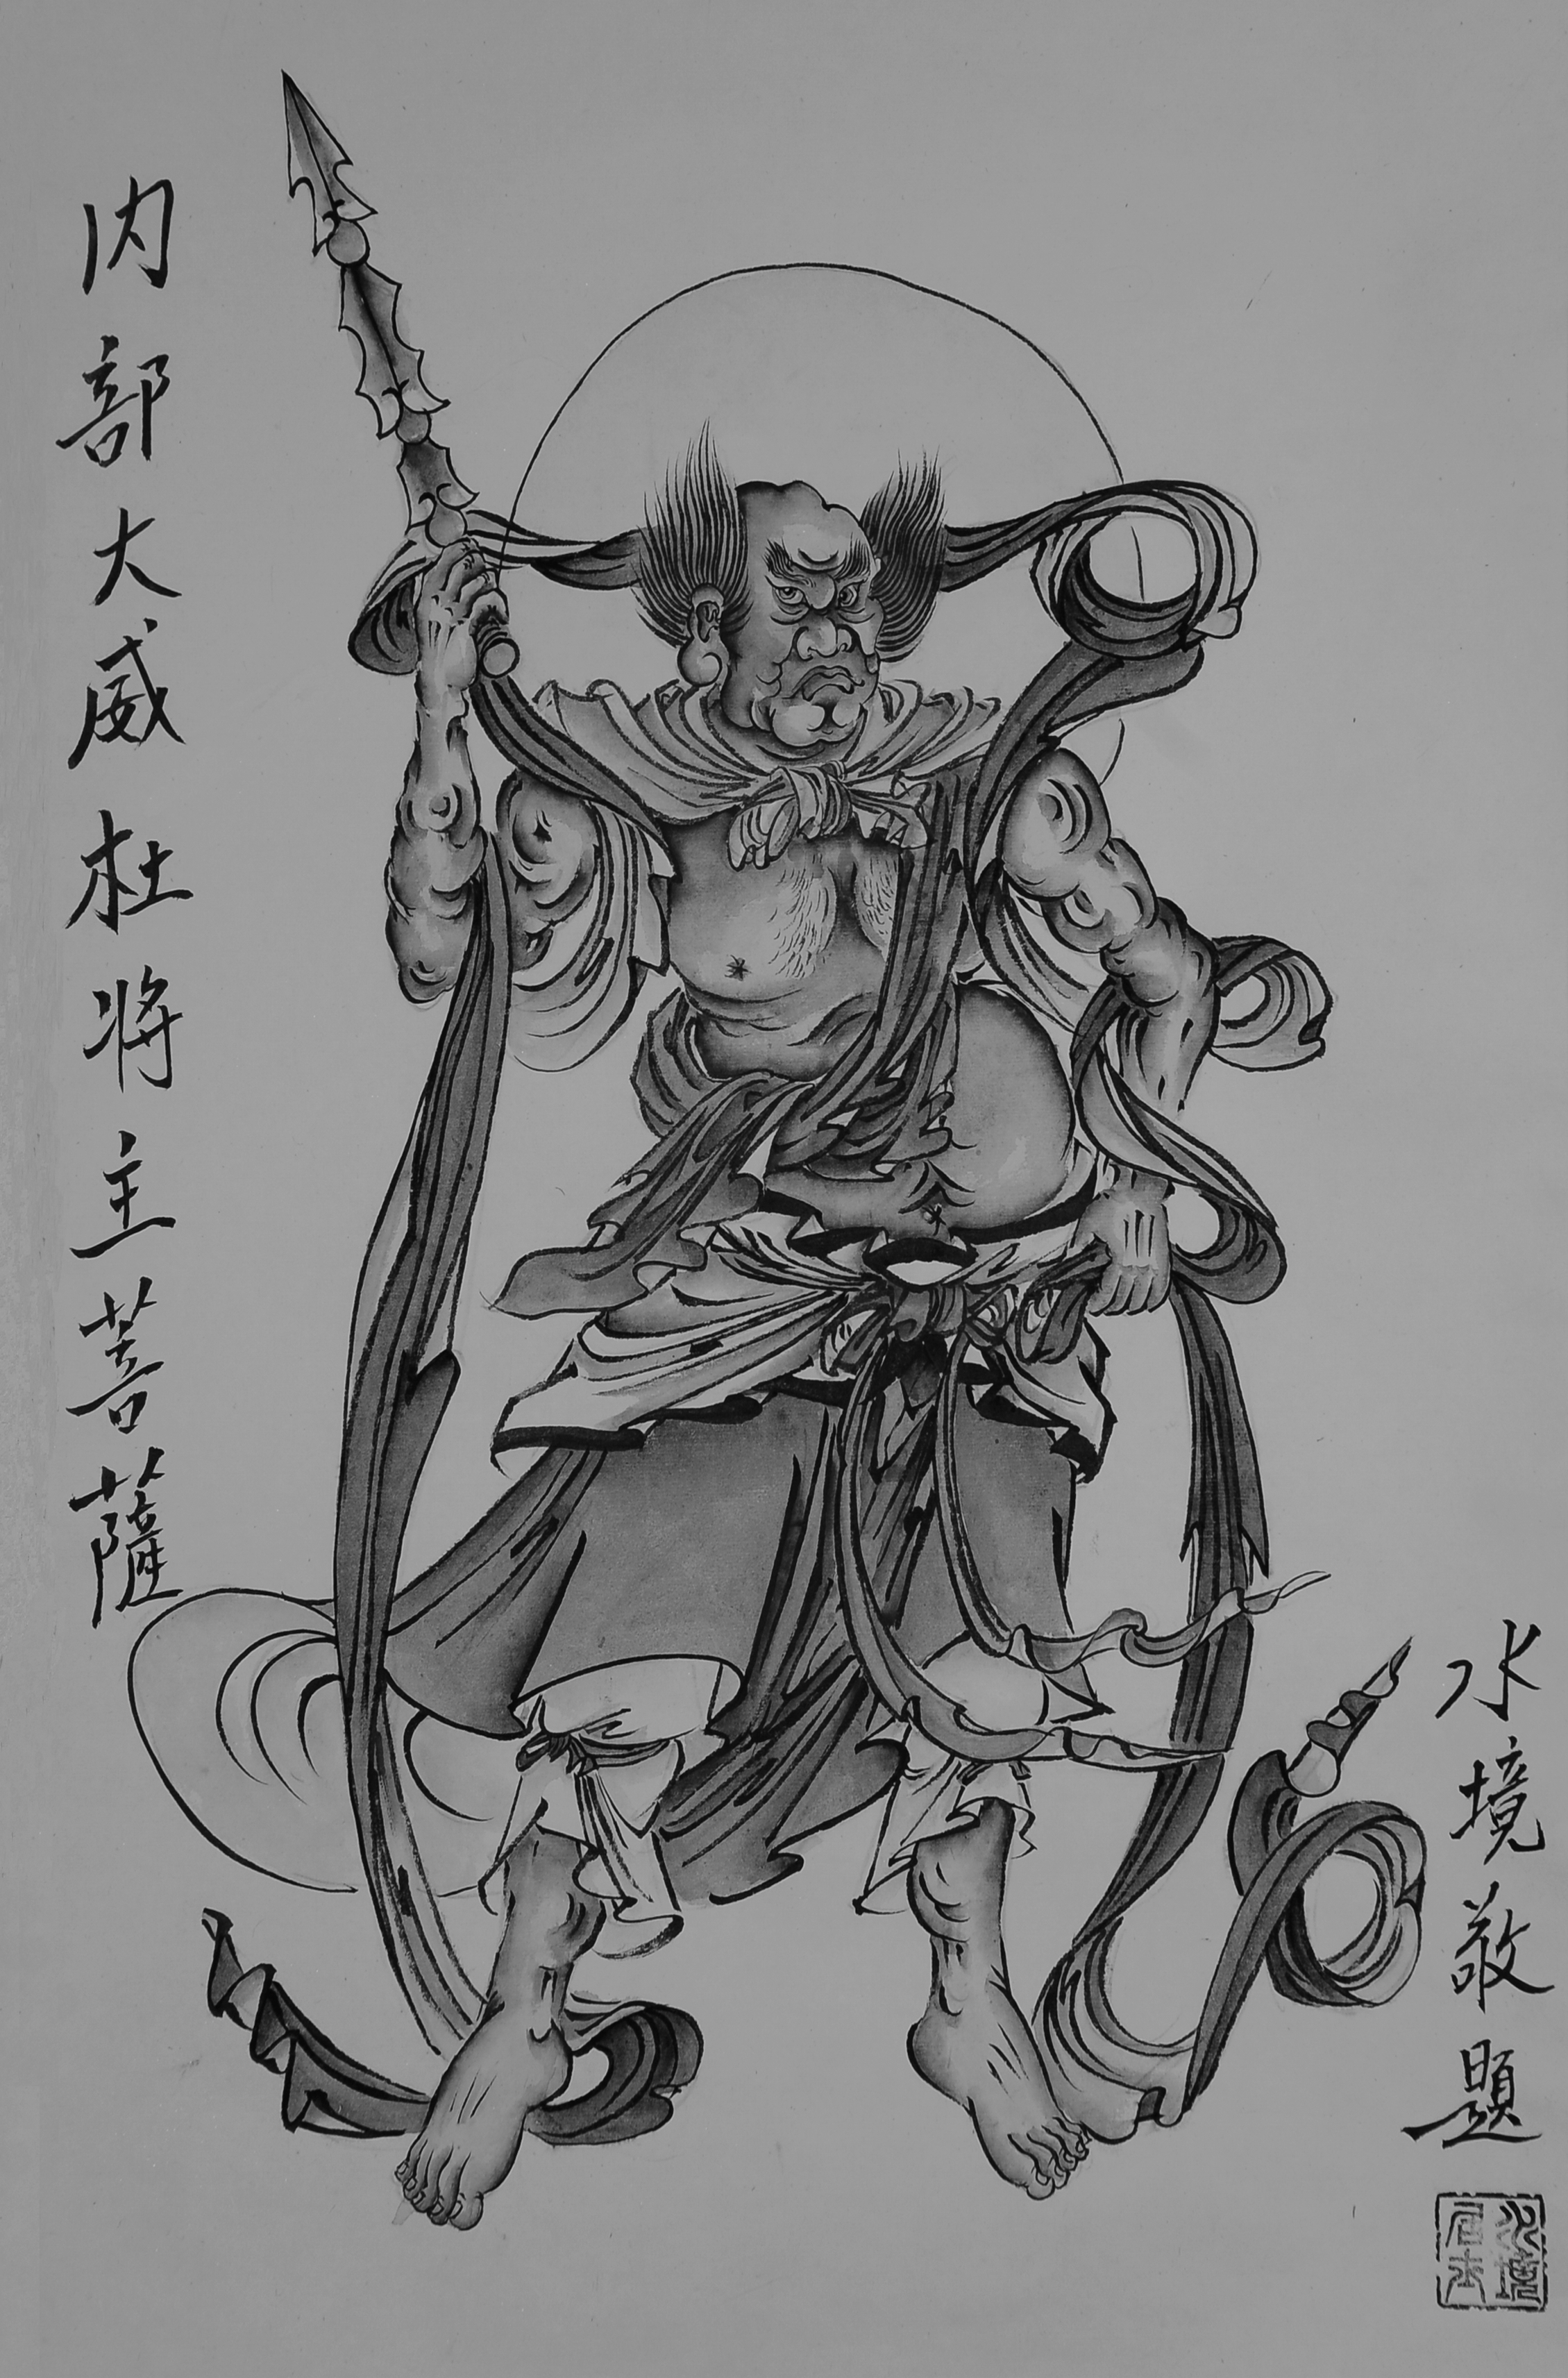 内部大威杜将主菩薩
水境敬題
水境居士